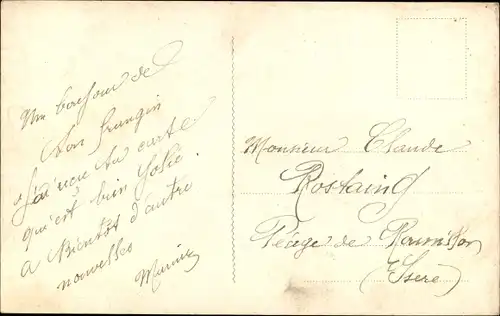 Un bonjour de
ton frangin
j'ai reçu ta carte
qu'est bien Jolie.
a Bientôt d'autre
nouvelles
Monsieur Claude
Rostaing
Péage de Roussillon
(Isère)